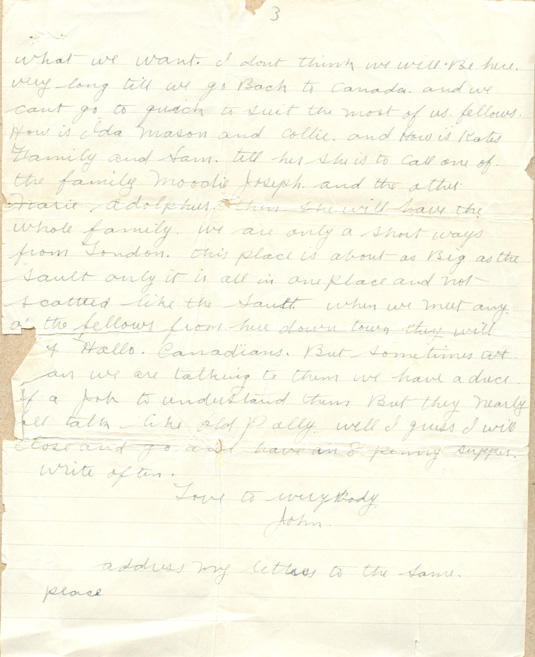 3
what we want. I dont think we will Be here.
very long till we go Back to Canada. and we
cant go to quick to suit the most of us fellows.
How is Ida Mason and Collie. and How is Kates
Family and Sam. tell her she is to call one of
the family Moodie Joseph. and the other
Marie Adolphus. then she will have the
whole family. we are only a short ways
from London. this place is about as Big as the
Sault only it is all in one place and not
scatted like the Sault when we meet any
of the fellows from here down town they will
Hallo. Canadians. But sometimes
we are talking to them we have a duce
of a job to understand them But they nearly
all talk like old P ally. well I guess I will
close and go and have an 8 penny supper.
write often.
Love to everybody
John.
address my letters to the same.
place